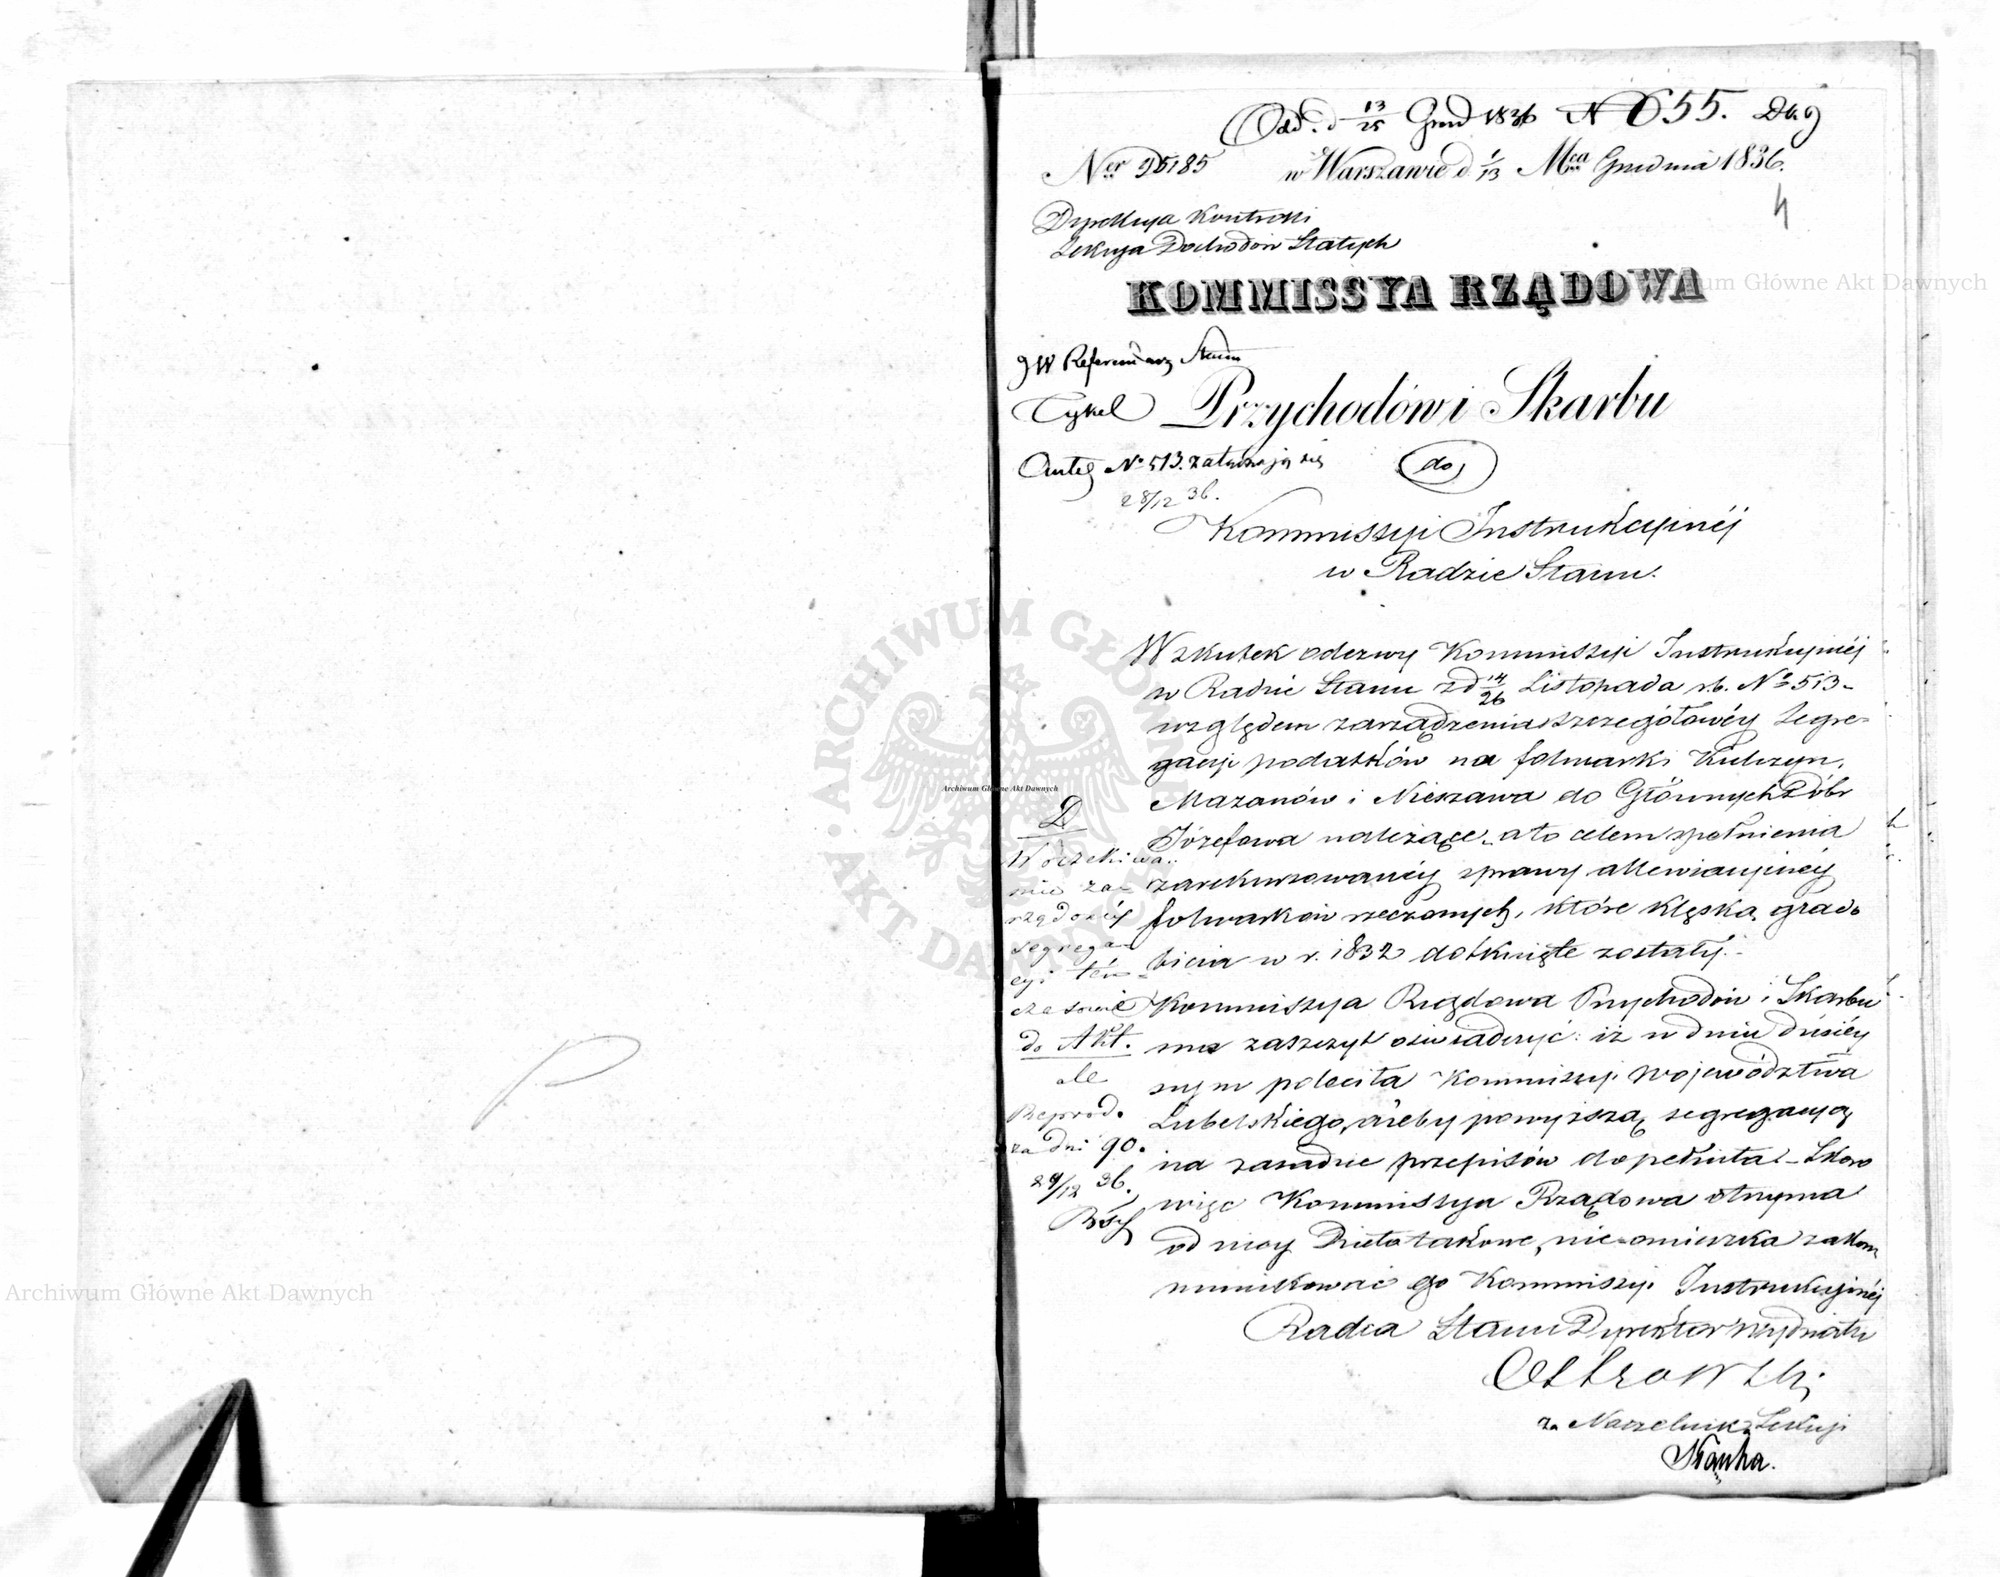 Odd. d 13/25 Grud 1836 N 655. D.
Ner 95185 w Warszawie d 1/13 Mca Grudnia 1836.
4
Dyrekcyja Kontrolli
Sekcyja Dochodów Stałych
KOMMISSYA RZĄDOWA
JW Referendarz Stanu
Tykel
Przychodów i Skarbu
Antec. No 513. załączają się
do
28/12 36.
Kommissyi Instrukcyjnéj
w Radzie Stanu.
W skutek odezwy Kommissyi Instrukcyjnéj
w Radzie Stanu z d 14/26 Listopada r.b. No 513-
względem zarządzenia szczegółowéy segre-
gacyi podatków na folwarki Kulczyn,
Mazanów i Nieszawa do Głównych Dóbr
Józefowa należące, a to celem spełnienia
zarekursowanéy sprawy allewiacyinéy
folwarków rzeczonych, które klęską grado
bicia w r. 1832 dotknięte zostały.-
Kommissyia Rządowa Przychodów i Skarbu
ma zaszczyt oświadczyć: iż w dniu dzisiéy
szym poleciła Kommissyi Województwa
Lubelskiego, ażeby powyższą segregacyią
na zasadzie przepisów dopełniła.- Skoro
więc Kommissyia Rządowa otrzyma
od niey Dzieło takowe, nie omieszka zakom
munikować go Kommissyi Instrukcyjnéj
Radca Stanu Dyrektor Wydziału
Ostrowski
za Naczelnika Sekcyi
D
W oczekiwa-
niu za-
rządzonéy
segrega-
cyi tém-
czasowie
do Akt.
ale
Reprod.
za dni 90.
29/12 36.
Archiwum Główne Akt Dawnych
Archiwum Główne Akt Dawnych
Archiwum Główne Akt Dawnych
ARCHIWUM GŁÓWNE AKT DAWNYCH
P